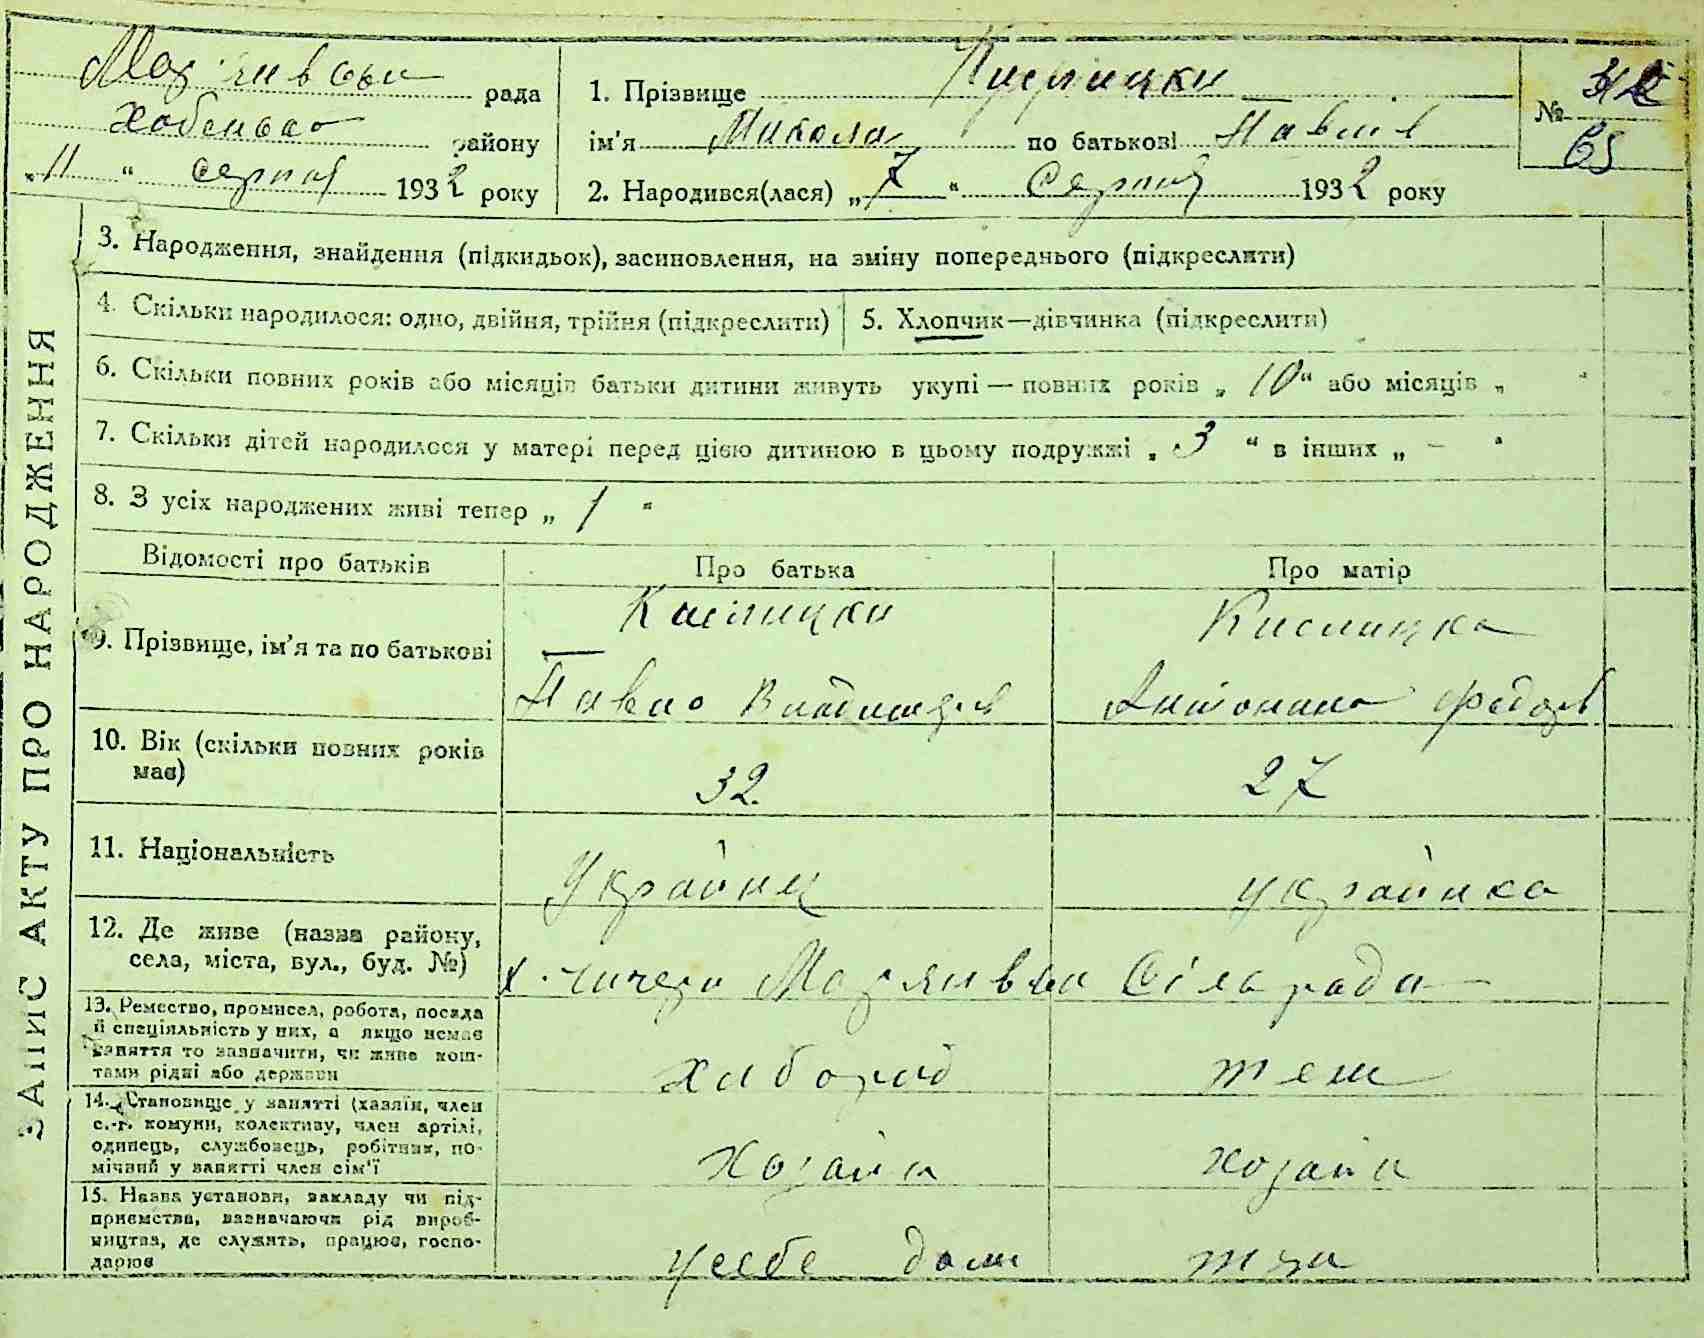 рада
району
„11 “ серпня 1932 року
1. Прізвище Кислицки
ім'я Микола по батькові Павлів
2. Народився(лася) „7“ Серпня 1932 року
№
65
ЗАПИС АКТУ ПРО НАРОДЖЕННЯ
3. Народження, знайдення (підкидьок), засиновлення, на зміну попереднього (підкреслити)
4. Скільки народилося: одно, двійня, трійня (підкреслити)
5. Хлопчик—дівчинка (підкреслити)
6. Скільки повних років або місяців батьки дитини живуть укупі — повних років „ 10 “ або місяців „ “
7. Скільки дітей народилося у матері перед цією дитиною в цьому подружжі „ 3 “ в інших „ – “
8. З усіх народжених живі тепер „ 1 “
Відомості про батьків
Про батька
Про матір
9. Прізвище, ім'я та по батькові
Кислицки
Павло
Кислицка
Антонина Федорів
10. Вік (скільки повних років
має)
32
27
11. Національність
Україниц
українка
12. Де живе (назва району,
села, міста, вул., буд. №)
х. Сіль ради
13. Ремество, промисел, робота, посада
й спеціяльність у них, а якщо немає
заняття то зазначити, чи живе кош-
тами рідні або держави
хлібороб
теж
14. Становище у занятті (хазяїн, член
с.-г. комуни, колективу, член артілі,
одинець, службовець, робітник, по-
мічний у занятті член сім'ї
хозаїн
хозаїн
15. Назва установи, закладу чи під-
приємства, вазначаючи рід вироб-
ництва, де служить, працює, госпо-
дарює
усебе дома